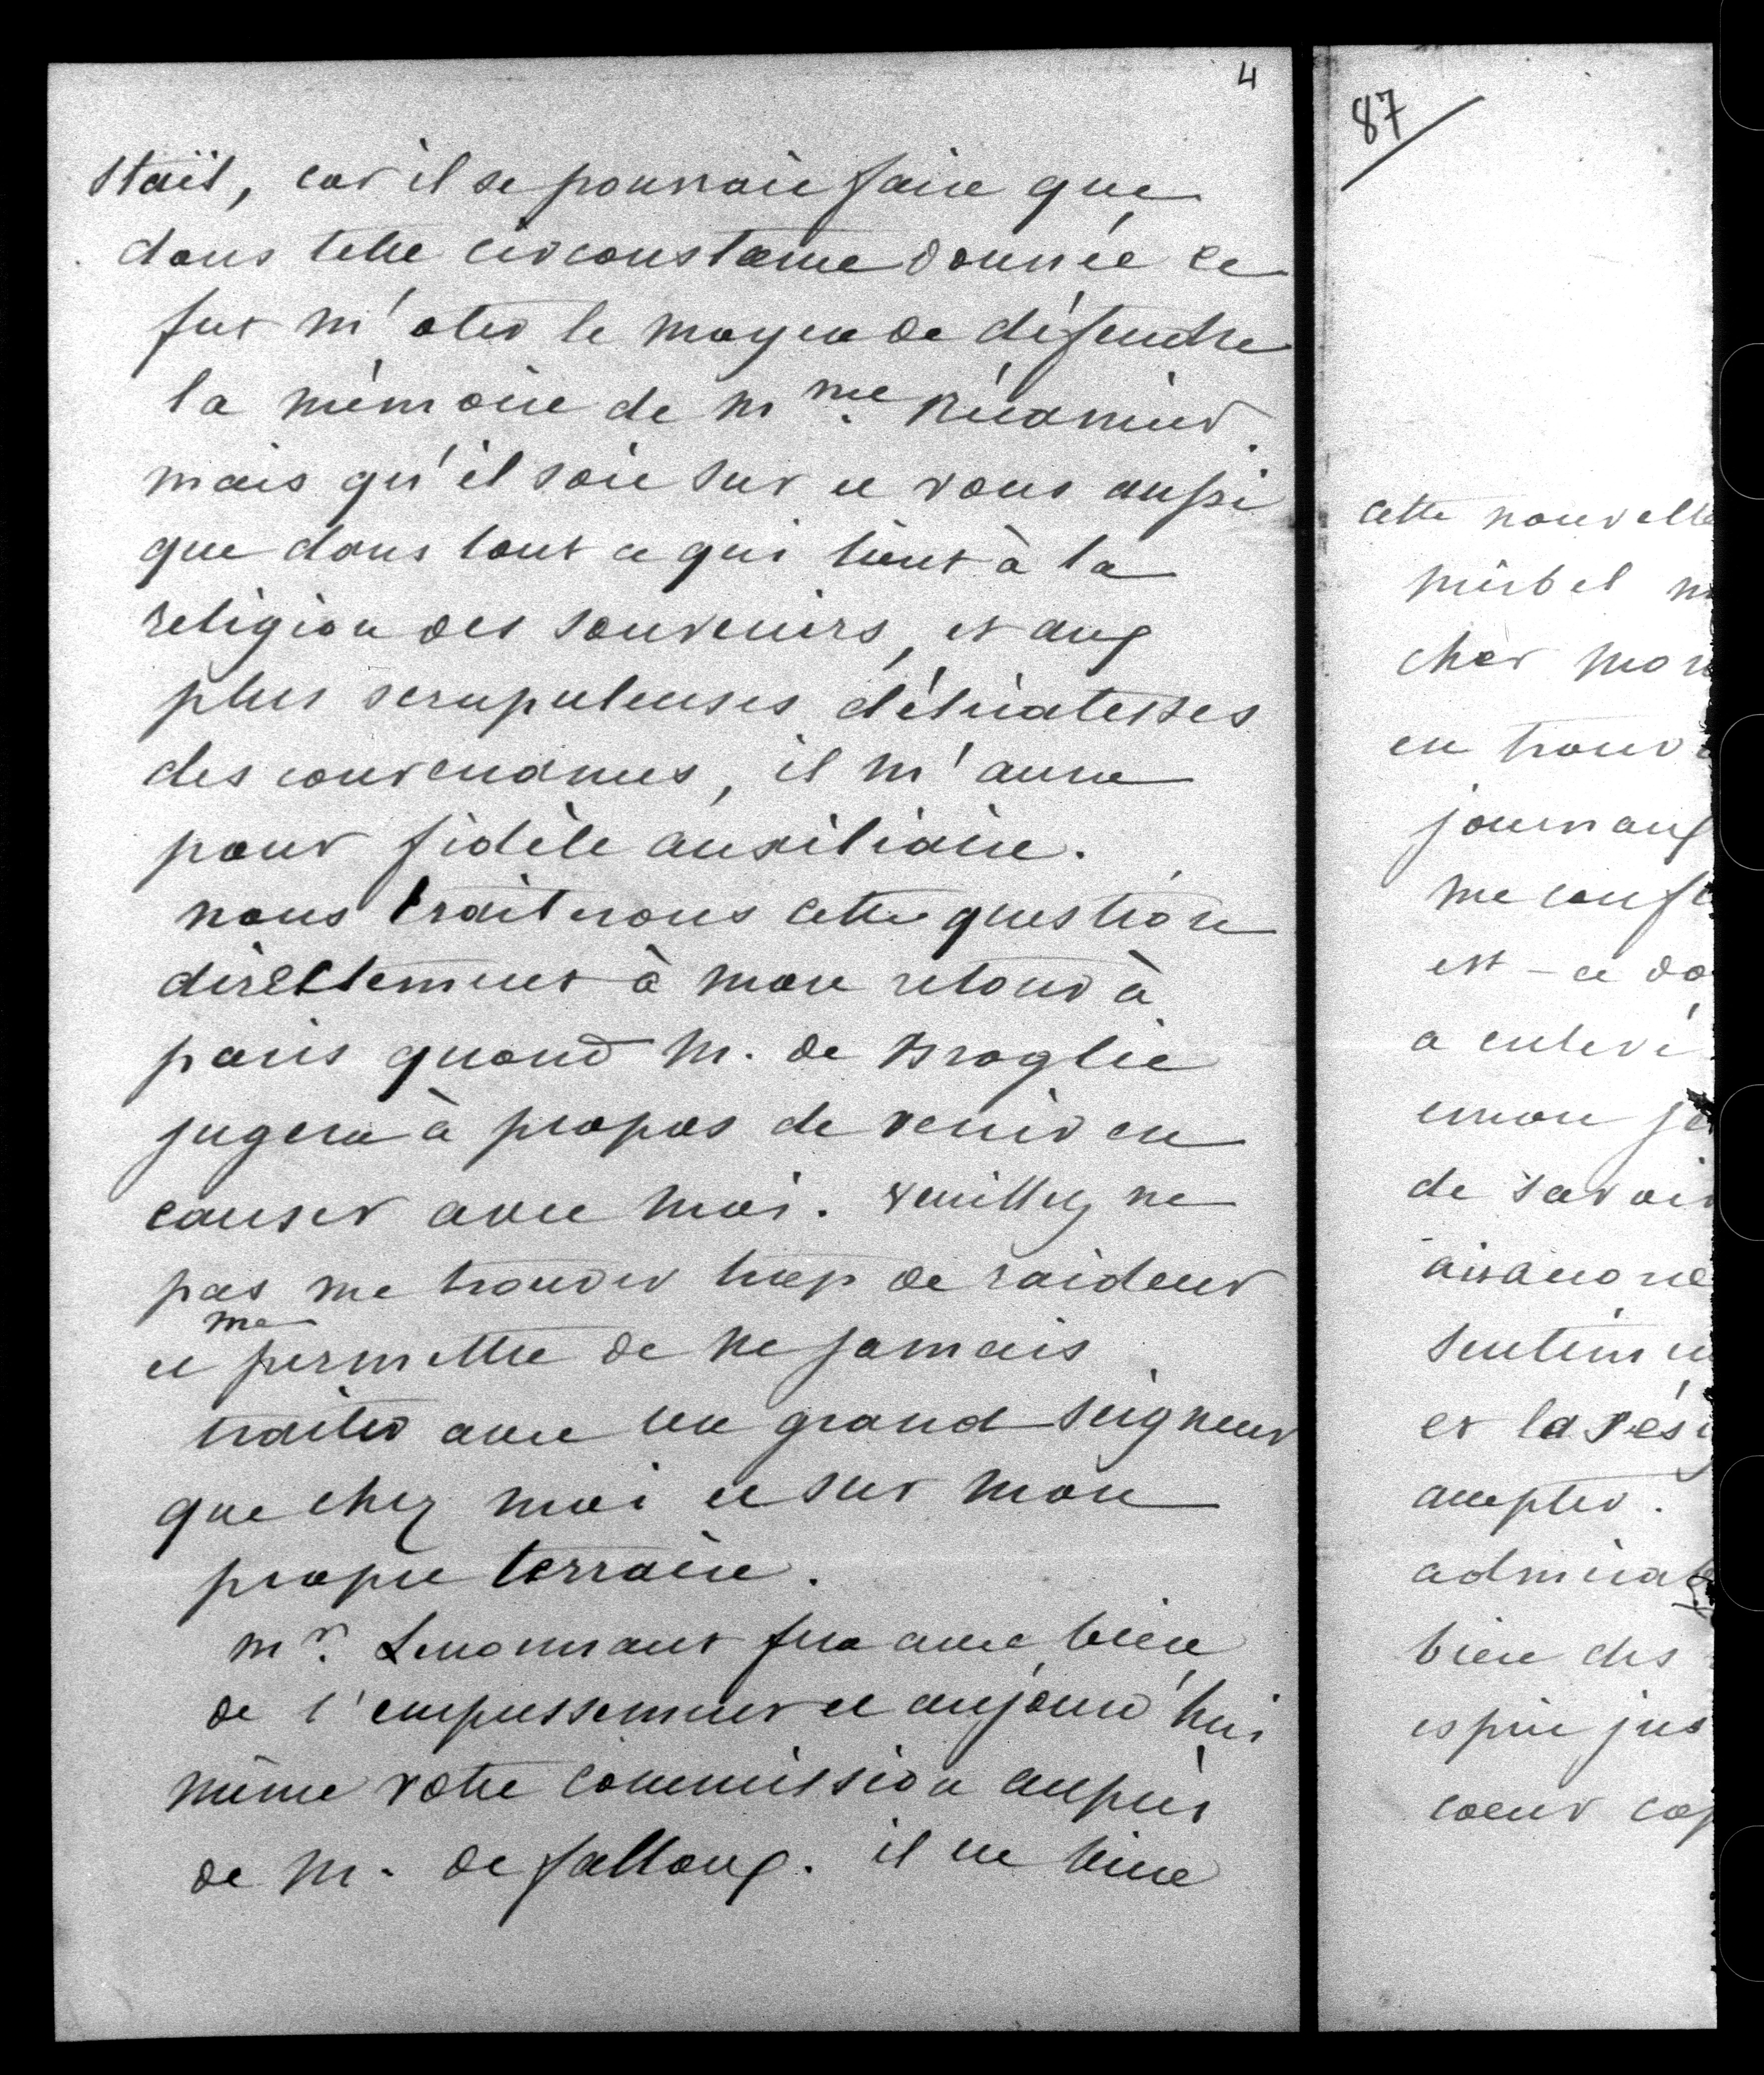 4
Staël, car il se pourroit faire que
dans telle circonstance donnée ce
fut m'oter le moyen de défendre
la mémoire de Mme Récamier.
mais qu'il soit sur et vous aussi
que dans tout ce qui tient à la
religion des souvenirs, et aux
plus scrupuleuses délicatesses
des convenances, il m'aura
pour fidèle auxiliaire.
nous traiterons cette question
directement à mon retour à
paris quand M. de Broglie
jugera à propos de venir en
causer avec moi. veuillez ne
pas me trouver trop de raideur
me
et permettre de ne jamais
traiter avec un grand seigneur
que chez moi et sur mon
propre terrain.
mr. Lenormant fera avec bien
de l'empressement et aujourd'hui
même votre commission auprès
de M. de falloux. il en tient
87
cette nouvelle
mirbel m
cher mon
en trouv
journaux
me conf
est-ce do
a enlevé
emon je
de savoir
sentim
et la rés
accepter.
admirab
bien des
esprit jus
coeur cap